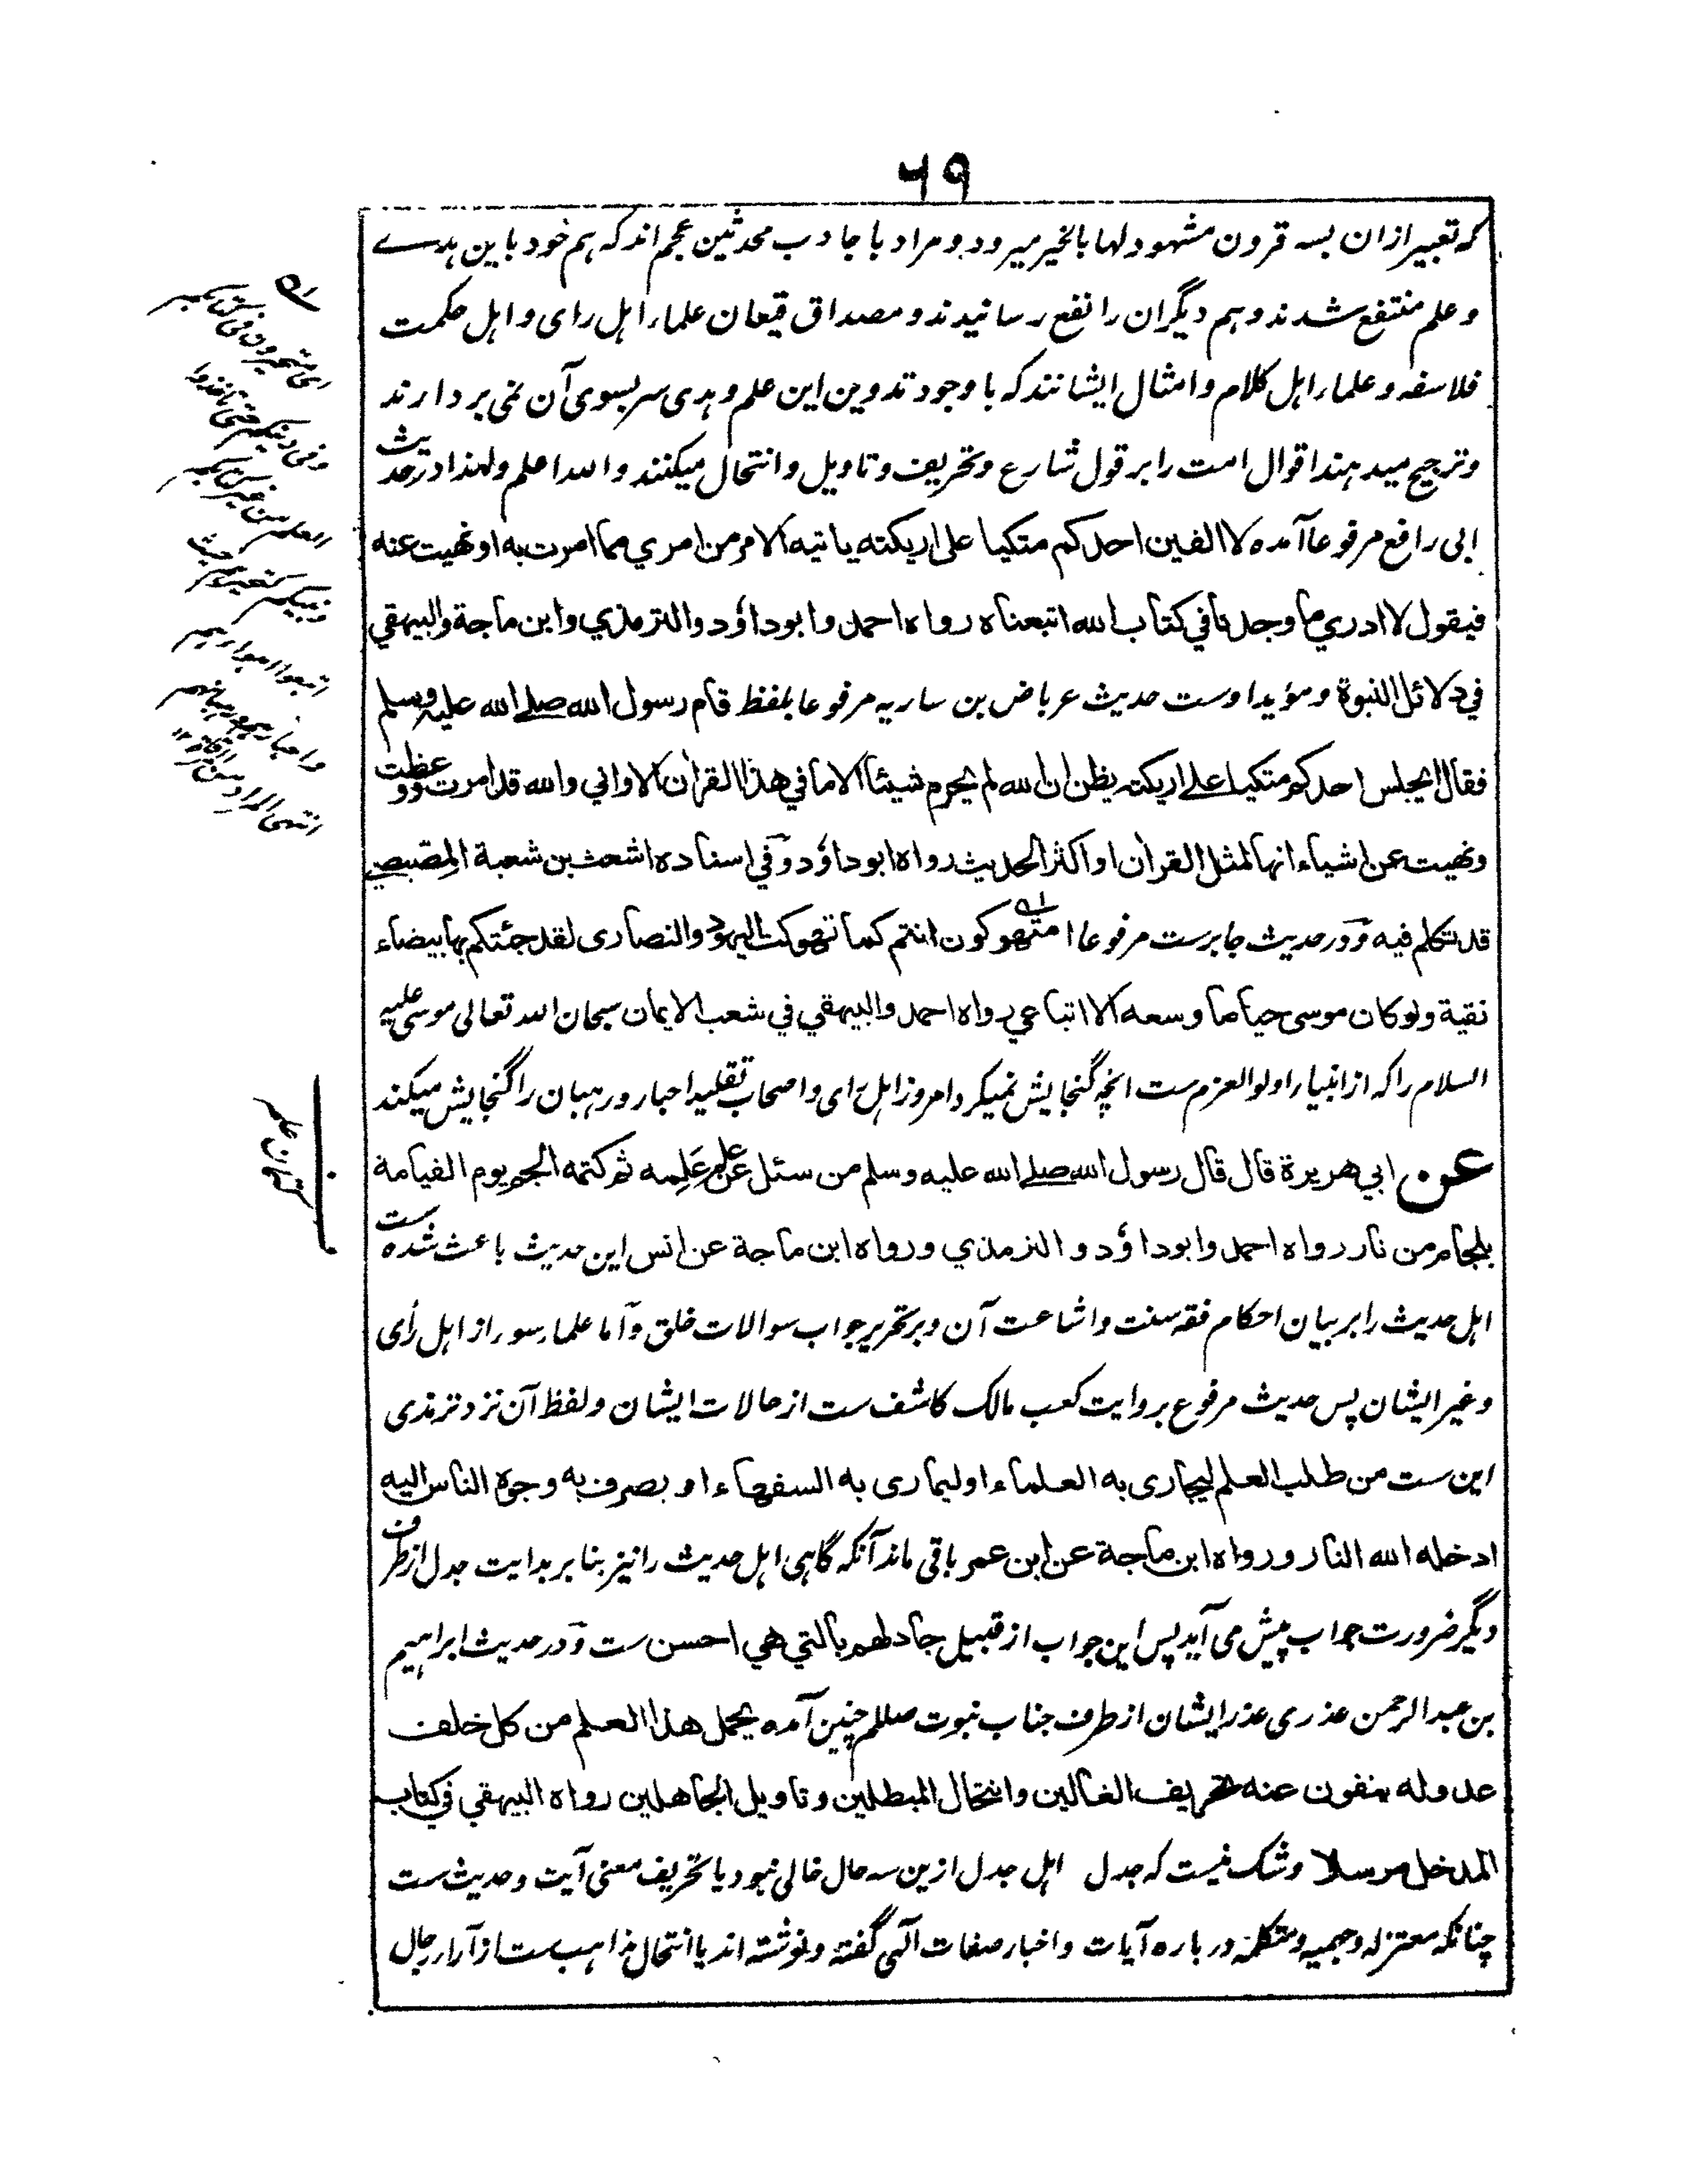 ۶۹
که تعبیر ازان بسه قرون مشهود لها بالخیر میرود و مراد باجادب محدثین عجم اند که هم خود باین هدے
و علم منتفع شدند و هم دیگران را نفع رسانیدند و مصداق قیعان علماء اهل رای و اهل حکمت
فلاسفه و علماء اهل کلام و امثال ایشانند که باوجود تدوین این علم و هدی سر بسوی آن نمی بردارند
و ترجیح میدهند اقوال امت را بر قول شارع و تحریف و تاویل و انتحال میکنند و الله اعلم و لهذا در حدیث
ابی رافع مرفوعا آمده لا الفین احدکم متکیا علی اریکته یاتیه الامر من امری مما امرت به او نهیت عنه
فیقول لا ادری ما وجدنا فی کتاب الله اتبعناه رواه احمد و ابو داؤد و الترمذی و ابن ماجة و البیهقی
فی دلائل النبوة و مؤید اوست حدیث عرباض بن ساریه مرفوعا بلفظ قام رسول الله صلے الله علیه وسلم
فقال ایجلس احدکم متکیا علے اریکته یظن ان الله لم یحرم شیئا الا ما فی هذا القران الا وانی والله قد امرت ووعظت
ونهیت عن اشیاء انها لمثل القران او اکثر الحدیث رواه ابو داؤد و فی اسناده اشعث بن شعبة المصیصی
قد تکلم فیه و در حدیث جابرست مرفوعا امتهوکون انتم کما تهوکت الیهود والنصاری لقد جئتکم بها بیضاء
نقیة ولو کان موسی حیا ما وسعه الا اتباعی رواه احمد والبیهقی فی شعب الایمان سبحان الله تعالی موسی علیه
السلام را که از انبیاء اولو العزم ست انچه گنجایش نمیکرد امروز اهل رای و اصحاب تقلید احبار و رهبان را گنجایش میکند
عن ابی هریرة قال قال رسول الله صلے الله علیه وسلم من سئل عن علم علمه ثم کتمه الجم یوم القیامة
بلجام من نار رواه احمد و ابو داؤد و الترمذی و رواه ابن ماجة عن انس این حدیث باعث شده ست
اهل حدیث را بر بیان احکام فقه سنت و اشاعت آن و بر تحریر جواب سوالات خلق و اما علماء سوء از اهل رأی
و غیر ایشان پس حدیث مرفوع بروایت کعب مالک کاشف ست از حالات ایشان و لفظ آن نزد ترمذی
این ست من طلب العلم لیجاری به العلماء او لیماری به السفهاء او یصرف به وجوه الناس الیه
ادخله الله النار و رواه ابن ماجة عن ابن عمر باقی ماند آنکه گاهی اهل حدیث را نیز بنابر بدایت جدل از طرف
دیگر ضرورت جواب پیش می آید پس این جواب از قبیل جادلهم بالتی هی احسن ست و در حدیث ابراهیم
بن عبد الرحمن عذری عذر ایشان از طرف جناب نبوت صللم چنین آمده یحمل هذا العلم من کل خلف
عدوله ینفون عنه تحریف الغالین وانتحال المبطلین وتاویل الجاهلین رواه البیهقی فی کتاب
المدخل مرسلا و شک نیست که جدل اهل جدل ازین سه حال خالی نبود یا تحریف معنی آیت و حدیث ست
چنانکه معتزله و جهمیه و متکلمه درباره آیات و اخبار صفات الٓهی گفته و نوشته اند یا انتحال مذاهب ست از آراء رجال
ای متحیرون فی دینکم
حتی تاخذوا
العلم من غیر کتابکم
ونبیکم
کتمان علم